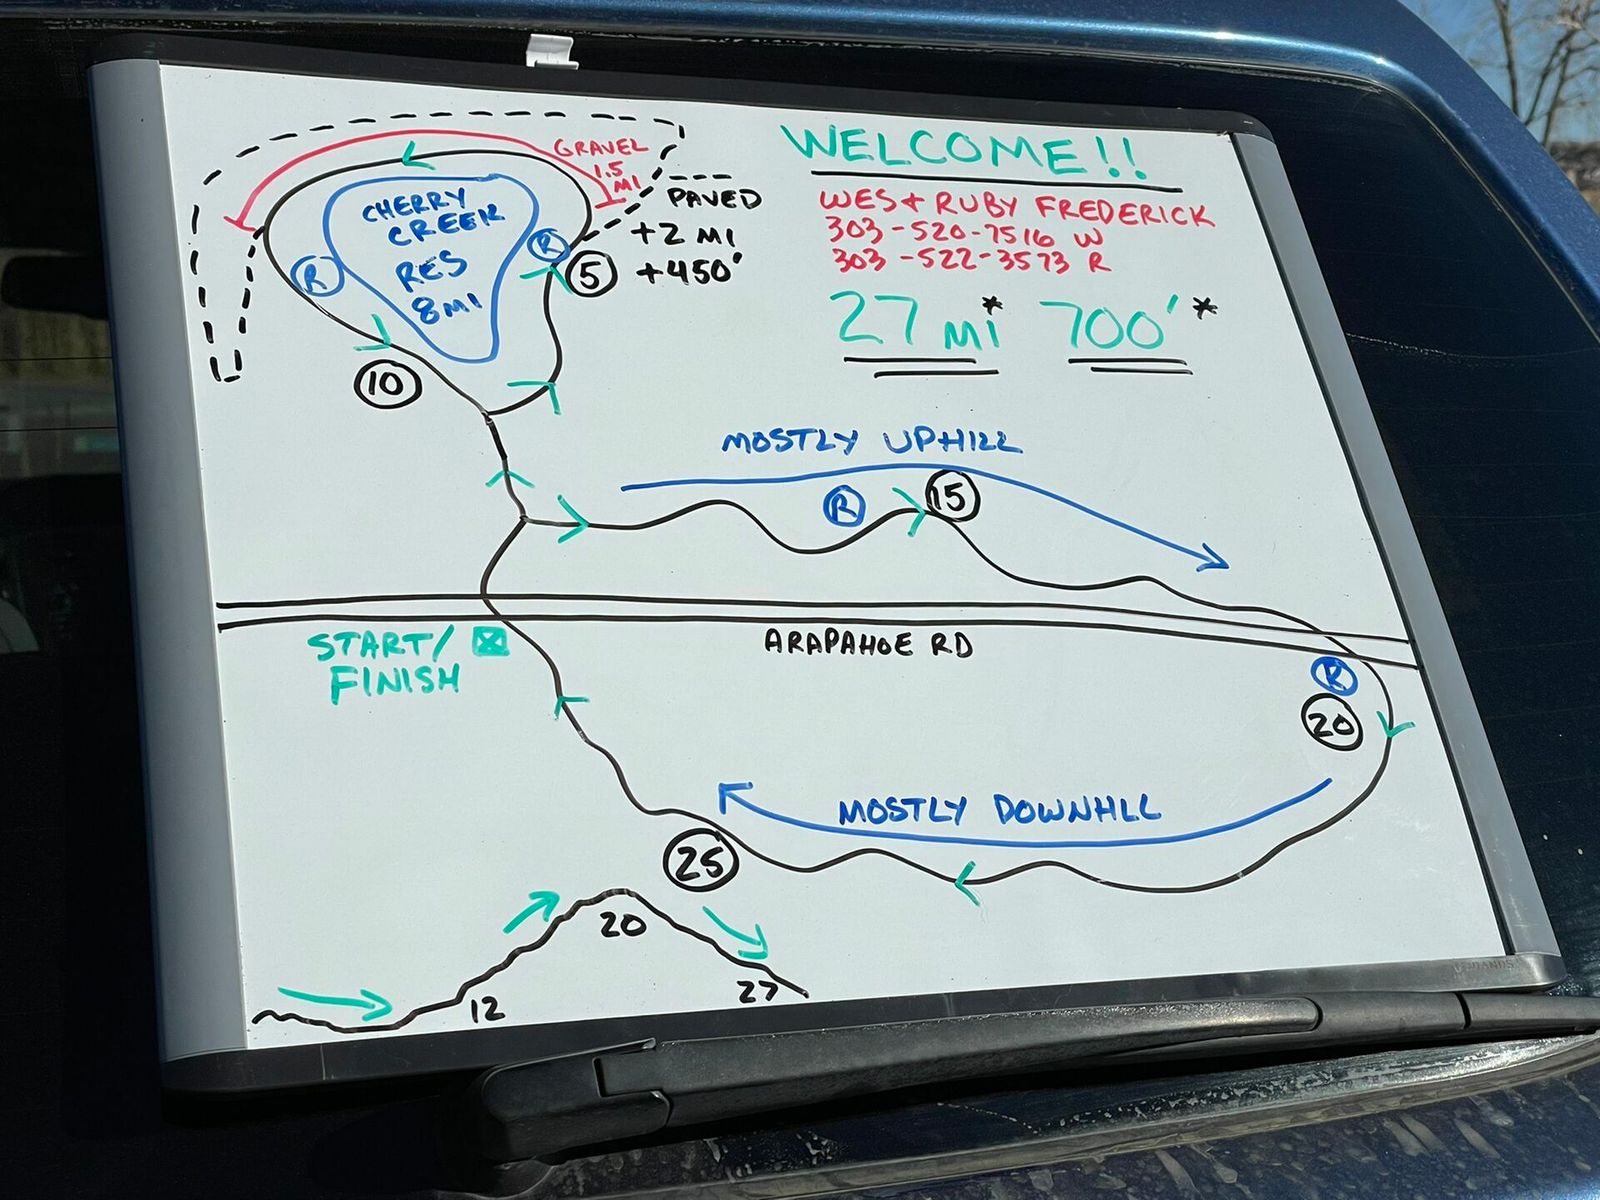 WELCOME!!
WES + RUBY FREDERICK
303-520-7516 W
303-522-3573 R
27 MI* 700'*
GRAVEL
1.5
MI
PAVED
+2 MI
+450'
CHERRY
CREEK
RES
8MI
R
R
5
10
MOSTLY UPHILL
R
15
ARAPAHOE RD
START/
FINISH
R
20
MOSTLY DOWNHLL
25
12
20
27